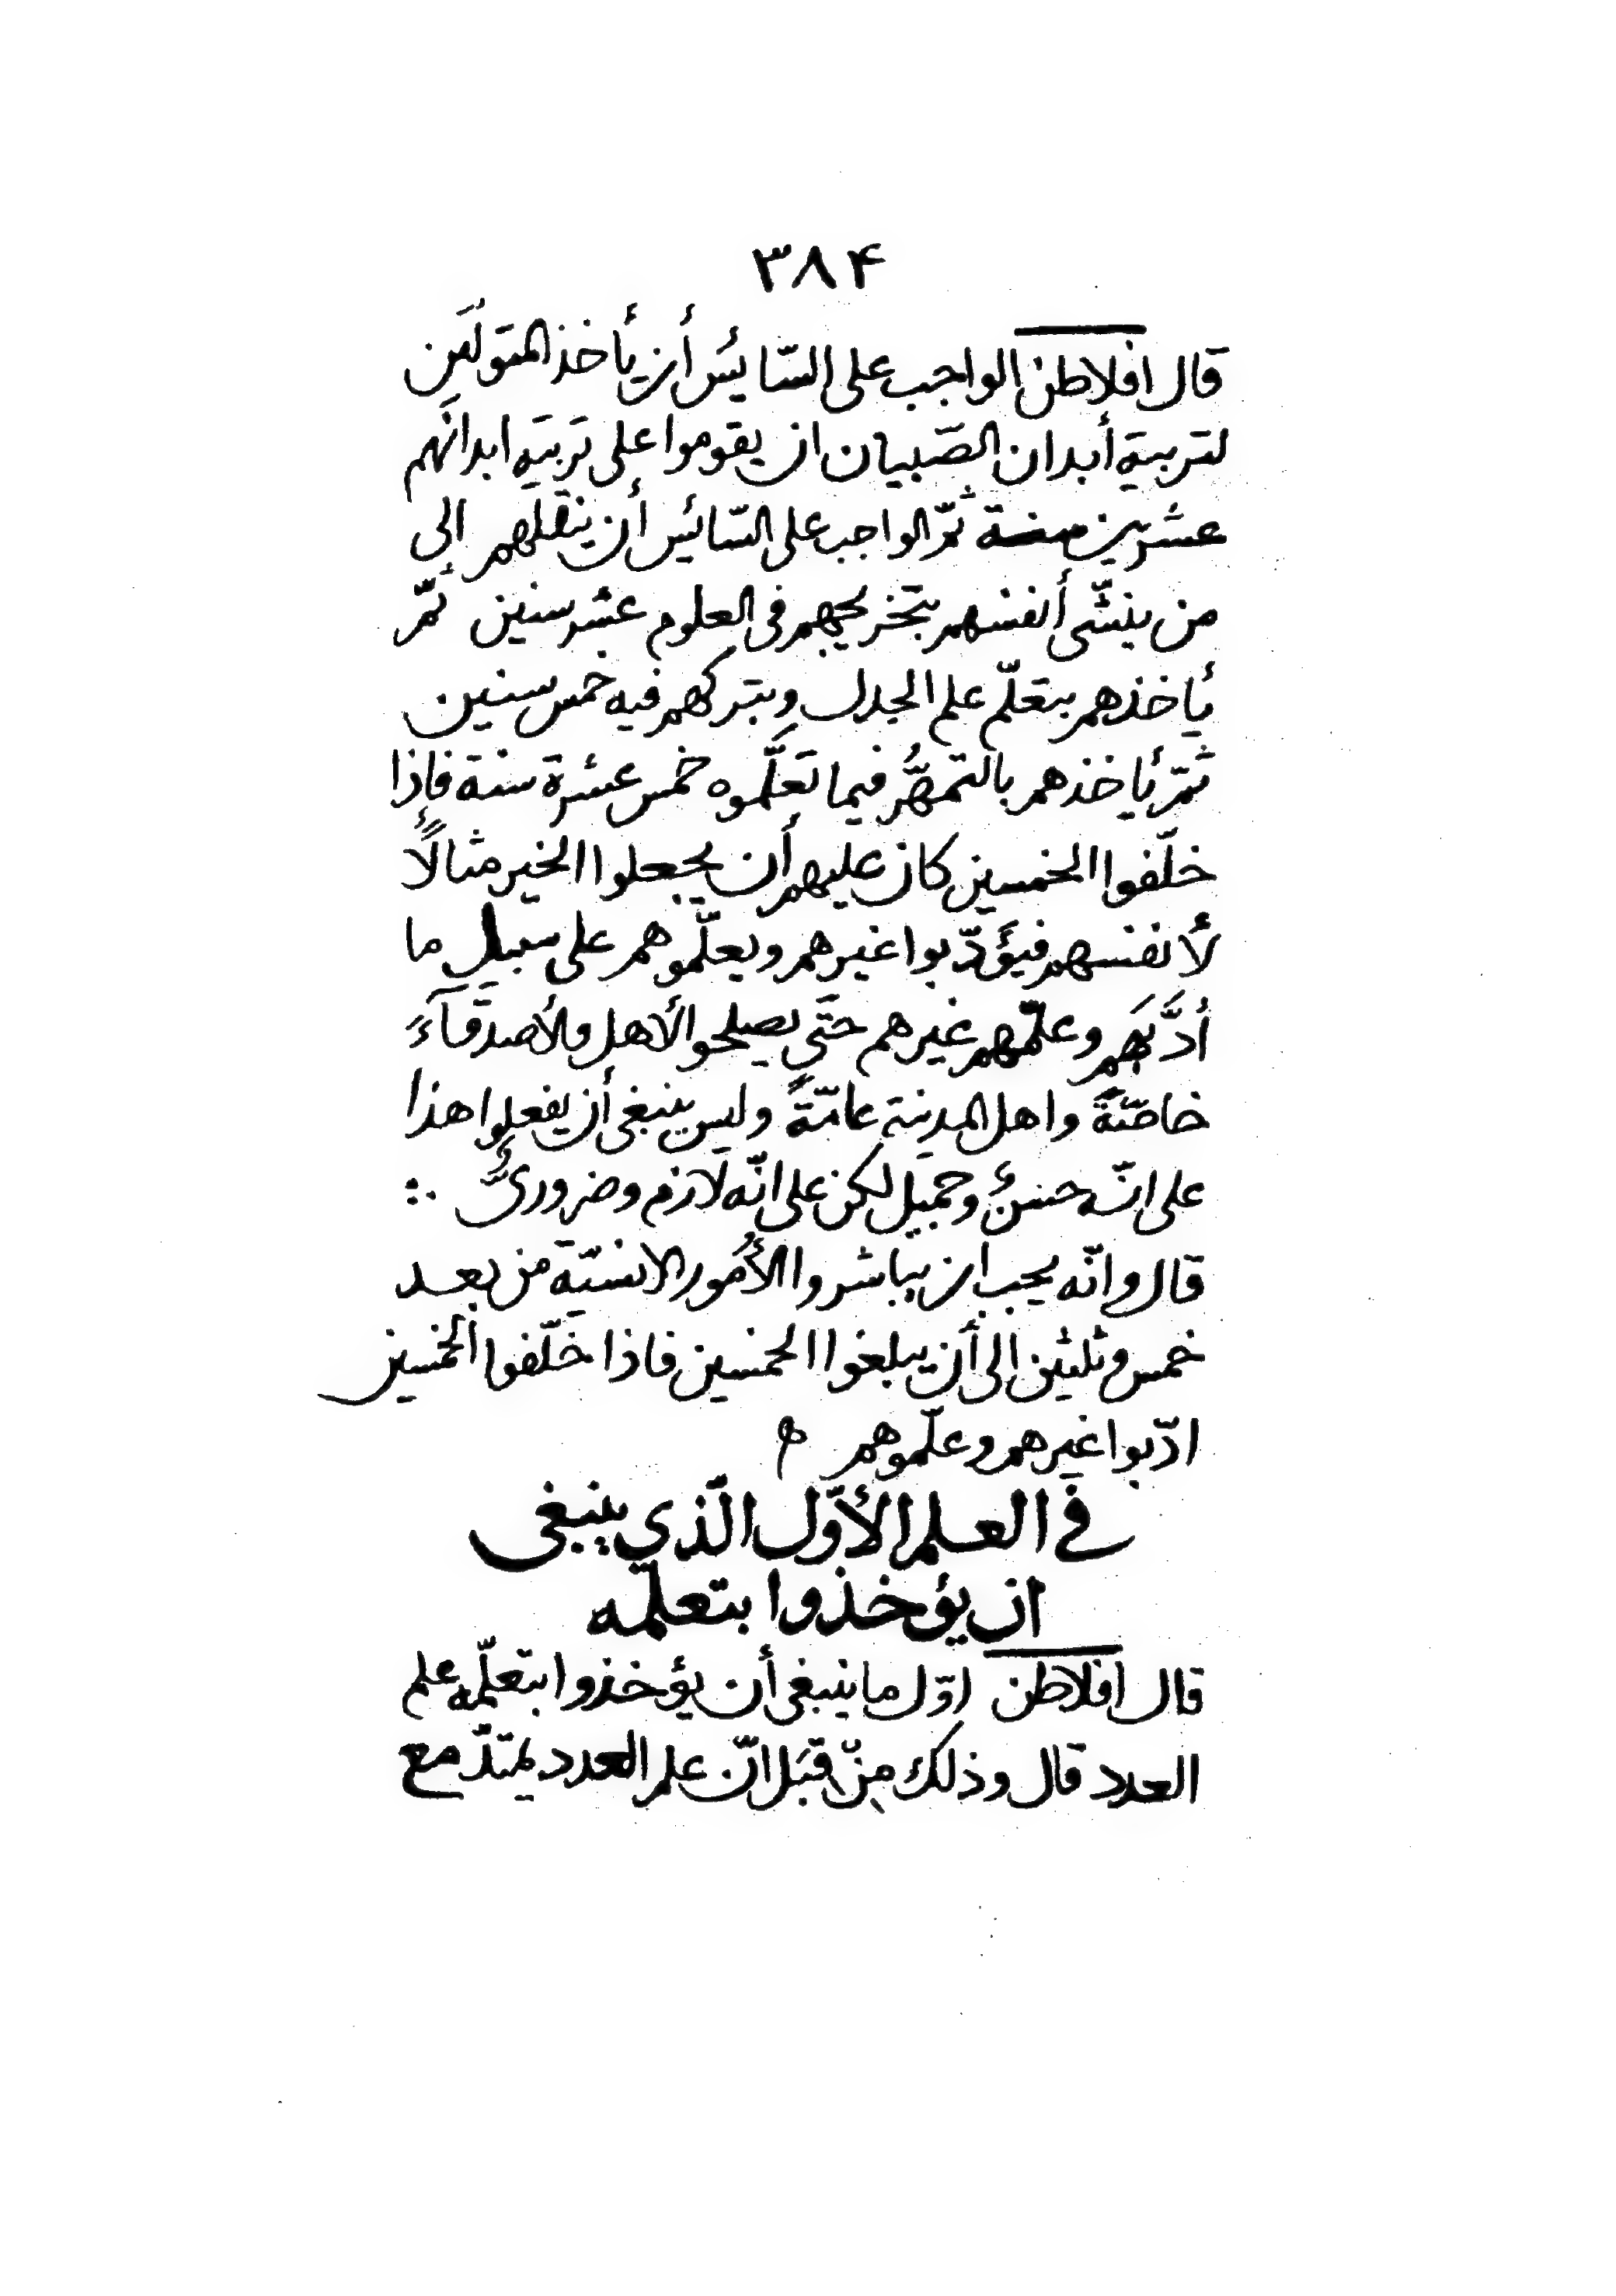 ٣٨۴
قال افلاطن الواجب على السّائس أن يأخذ المتولّين
لتربية أبدان الصّبيان ان يقوموا على تربية ابدانهم
عشرين سنة ثمّ الواجب على السّائس أن ينقلهم الى
من ينشّى أنفسهم بتخريجهم فى العلوم عشر سنين ثمّ
يأخذهم بتعلّم علم الجدل ويتركهم فيه خمس سنين
ثمّ يأخذهم بالتمهُّر فيما تعَلّموه خمس عشرة سنة فإذا
خلّفوا الخمسين كان عليهم أن يجعلوا الخير مثالًا
لأنفسهم فيؤَدّبوا غيرهم ويعلّموهم على سبيل ما
أدَّبَهم وعلّمهم غيرهم حتّى يصلحوا الأهل والأصدقآءَ
خاصّةً واهل المدينة عامّةً وليس ينبغى أن يفعلوا هذا
على انّه حسنٌ وجميل لكن على انّه لازم وضرورىٌّ .:
قال وانّه يجب ان يباشروا الأمُور الانسيّة من بعد
خمس وثلثين الى أن يبلغوا الخمسين فاذا خلّفوا الخمسين
ادّبوا غيرهم وعلّموهم ه
في العلم الأوّل الّذي ينبغى
ان يؤخذوا بتعلّمه
قال افلاطن اوّل ما ينبغى أن يؤخذوا بتعلّمه علم
العدد قال وذلك مِنْ قبَل انّ علم العدد يمتدّ مع